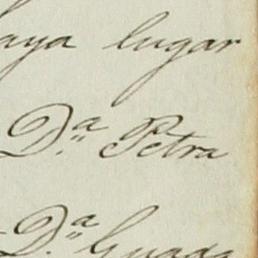 aya lugar
D.ª Petra
D.ª Guada